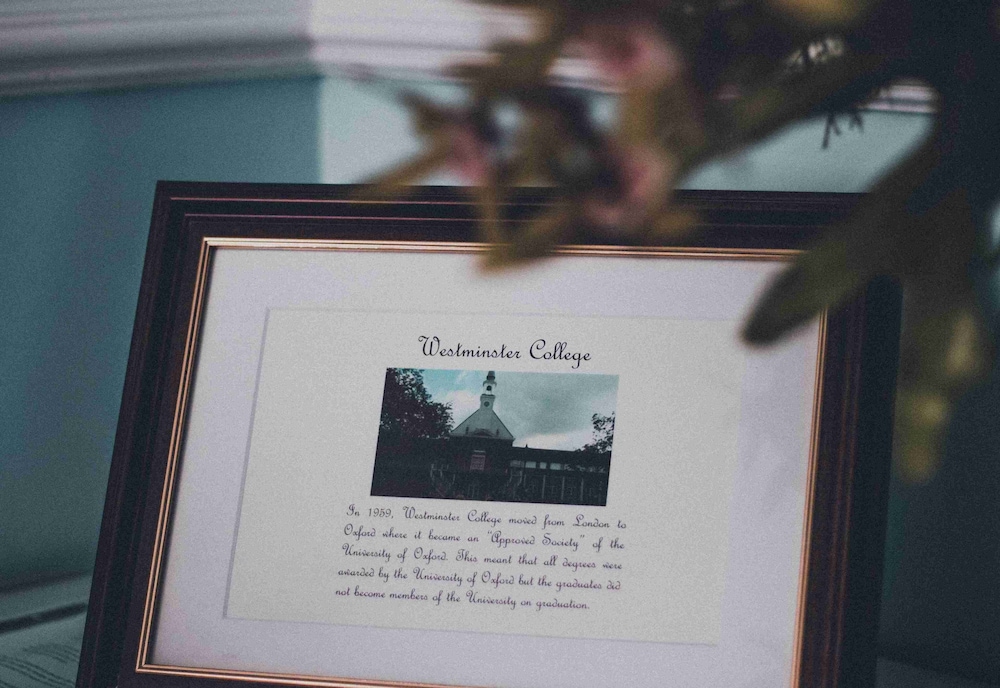 Westminster College
In 1959, Westminster College moved from London to
Oxford where it became an "Approved Society" of the
University of Oxford. This meant that all degrees were
awarded by the University of Oxford but the graduates did
not become members of the University on graduation.